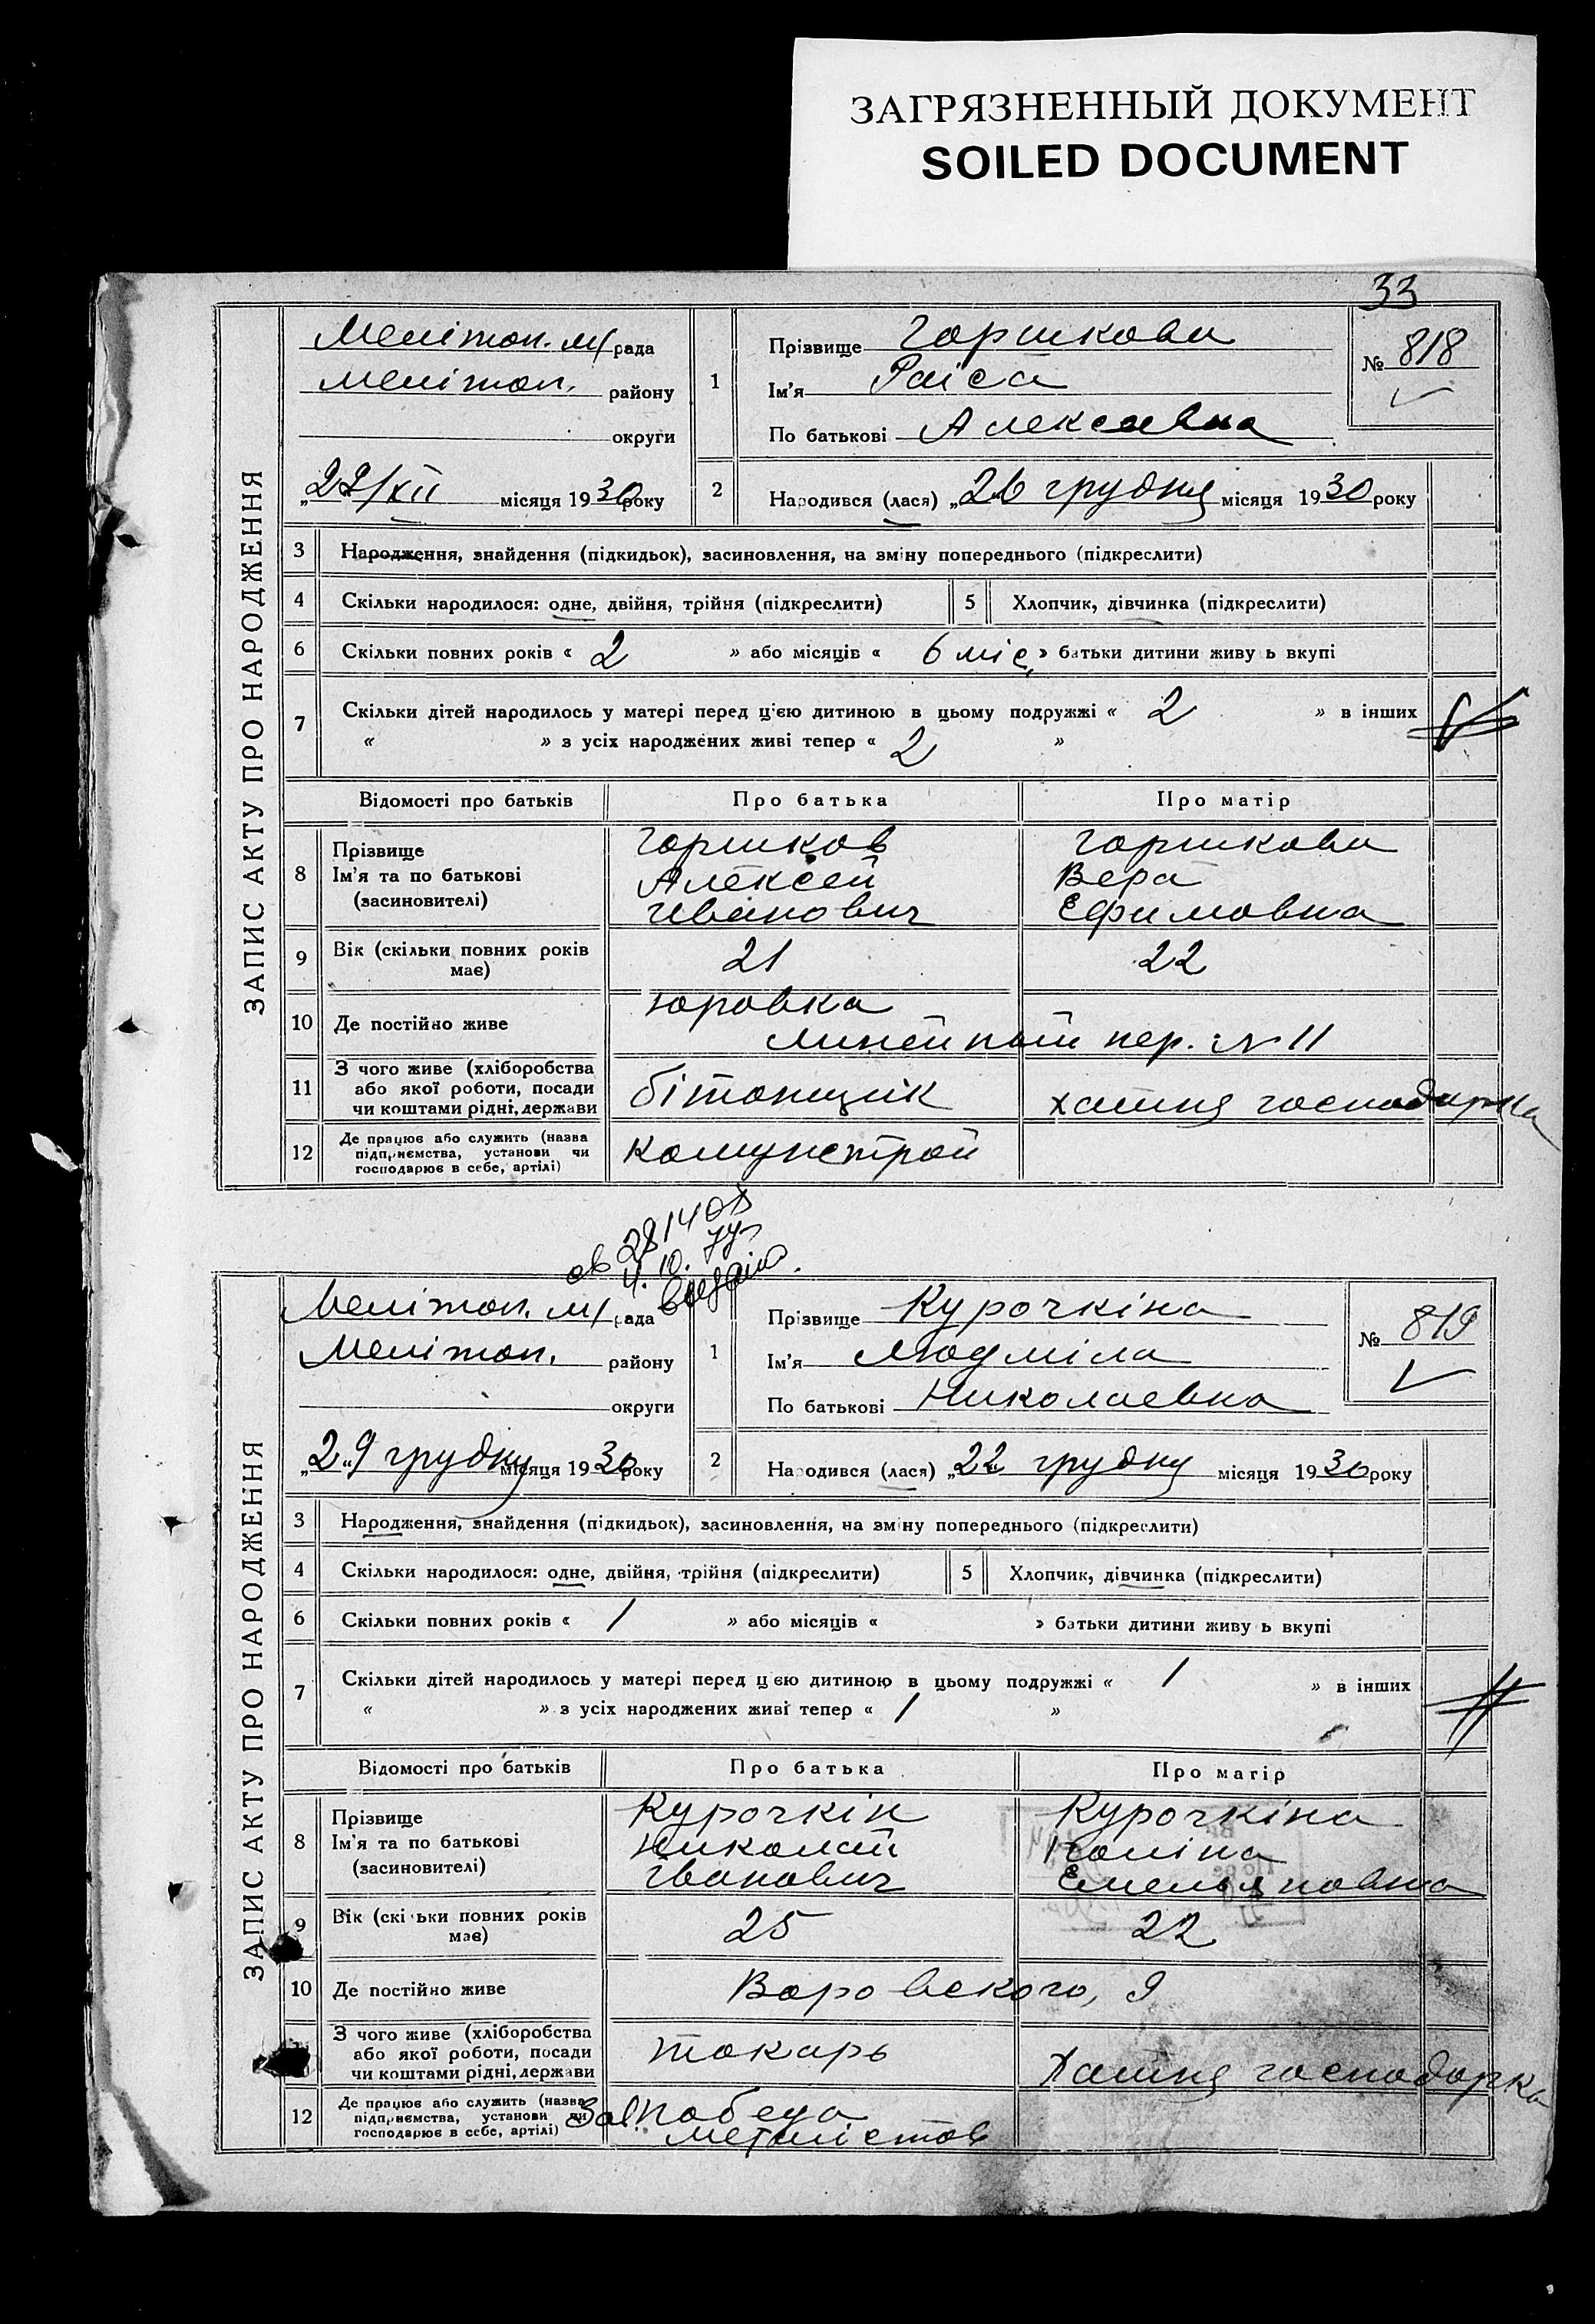 ЗАГРЯЗНЕННЫЙ ДОКУМЕНТ
SOILED DOCUMENT
33
ЗАПИС АКТУ ПРО НАРОДЖЕННЯ
Меліпоп. м/рада
Меліпоп. району
округи
„29/XII місяця 1930 року
1
Прізвище Горшкова
Ім'я Раіса
По батькові Алексеевна
№ 818
2
Народився (лася) „26 грудня місяця 1930 року
3 Народження, знайдення (підкидьок), засиновлення, на зміну попереднього (підкреслити)
4 Скільки народилося: одне, двійня, трійня (підкреслити) 5 Хлопчик, дівчинка (підкреслити)
6 Скільки повних років « 2 » або місяців « 6 міс. » батьки дитини живуть вкупі
7 Скільки дітей народилось у матері перед цією дитиною в цьому подружжі « 2 » в інших
« » з усіх народжених живі тепер « 2 »
Відомості про батьків Про батька Про матір
8 Прізвище Горшков Горшкова
Ім'я та по батькові Алексей Вера
(засиновителі) Іванович Ефимовна
9 Вік (скільки повних років має) 21 22
10 Де постійно живе Юровка
Линейный пер. № 11
11 З чого живе (хліборобства
або якої роботи, посади
чи коштами рідні, держави бітонщик хатня господарка
12 Де працює або служить (назва
підприємства, установи чи
господарює в себе, артілі) Комунстрой
28140
4. 10.
ЗАПИС АКТУ ПРО НАРОДЖЕННЯ
Меліпоп. м/рада
Меліпоп. району
округи
„29 грудня місяця 1930 року
1
Прізвище Курочкіна
Ім'я Людміла
По батькові Николаевна
№ 819
2
Народився (лася) „22 грудня місяця 1930 року
3 Народження, знайдення (підкидьок), засиновлення, на зміну попереднього (підкреслити)
4 Скільки народилося: одне, двійня, трійня (підкреслити) 5 Хлопчик, дівчинка (підкреслити)
6 Скільки повних років « 1 » або місяців « » батьки дитини живуть вкупі
7 Скільки дітей народилось у матері перед цією дитиною в цьому подружжі « 1 » в інших
« » з усіх народжених живі тепер « 1 »
Відомості про батьків Про батька Про матір
8 Прізвище Курочкін Курочкіна
Ім'я та по батькові Николай Поліна
(засиновителі) Іванович Емельяновна
9 Вік (скільки повних років має) 25 22
10 Де постійно живе Воровского, 9
З чого живе (хліборобства
або якої роботи, посади
чи коштами рідні, держави токарь Хатня господарка
12 Де працює або служить (назва
підприємства, установи чи
господарює в себе, артілі) Зав. победа
металістов